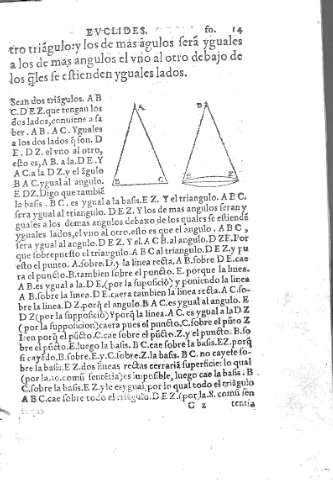 EVCLIDES. fo. 14
tro triágulo: y los de mas águlos será yguales
a los de mas angulos el vno al otro debajo de
los q̃les se estienden yguales lados.
Sean dos triágulos. A B
C. D E Z. que tengan los
dos lados, conuiene a sa
ber. A B. A C. Yguales
a los dos lados q̃ son. D
E. D Z. el vno al otro,
esto es, A B. a la. D E. Y
A C. a la D Z. y el águlo
B A C. ygual al angulo.
E D Z. Digo que tambié
la basis. B C. es ygual a la basis. E Z. Y el triangulo. A B C.
sera ygual al triangulo. D E Z. Y los de mas angulos seran y-
guales a los demas angulos debaxo de los quales se estiendé
yguales lados, el vno al otro. esto es que el angulo. A B C,
sera ygual al angulo. D E Z. Y el. A C B. al angulo. D Z E. Por
que sobrepuesto el triangulo. A B C al triangulo. D E Z. y pu
esto el punto. A. sobre. D. y la linea recta. A B. sobre D E. cae
ra el púcto. B. tambien sobre el puncto. E. porque la linea.
A B. es ygual a la. D E. (por la suposició) y poniendo la linea
A B. sobre la linea. D E. caera tambien la linea recta. A C. so-
bre la linea. D Z. porq̃ el angulo. B A C. es ygual al angulo. E
D Z (por la supposició) Y porq̃ la linea. A C. es ygual a la D Z
(por la supposicion) caera pues el púcto. C. sobre el púto Z
A
B
C
D
E
Z
bre el púcto. E. luego la basis. B C. cae sobre la basis. E Z. porq̃
si cayédo. B. sobre. E. y. C. sobre. Z. la basis. B C. no cayese so-
bre la basis. E Z. dos lineas rectas cerrariá superficie: lo qual
(por la. 10. comú sentécia) es imposible, luego cae la basis. B
C. sobre la basis. E Z. y le es ygual. por lo qual todo el triágulo
A B C. cae sobre todo el triágulo. D E Z. (por la. 8. comú sen
C 2 tentia